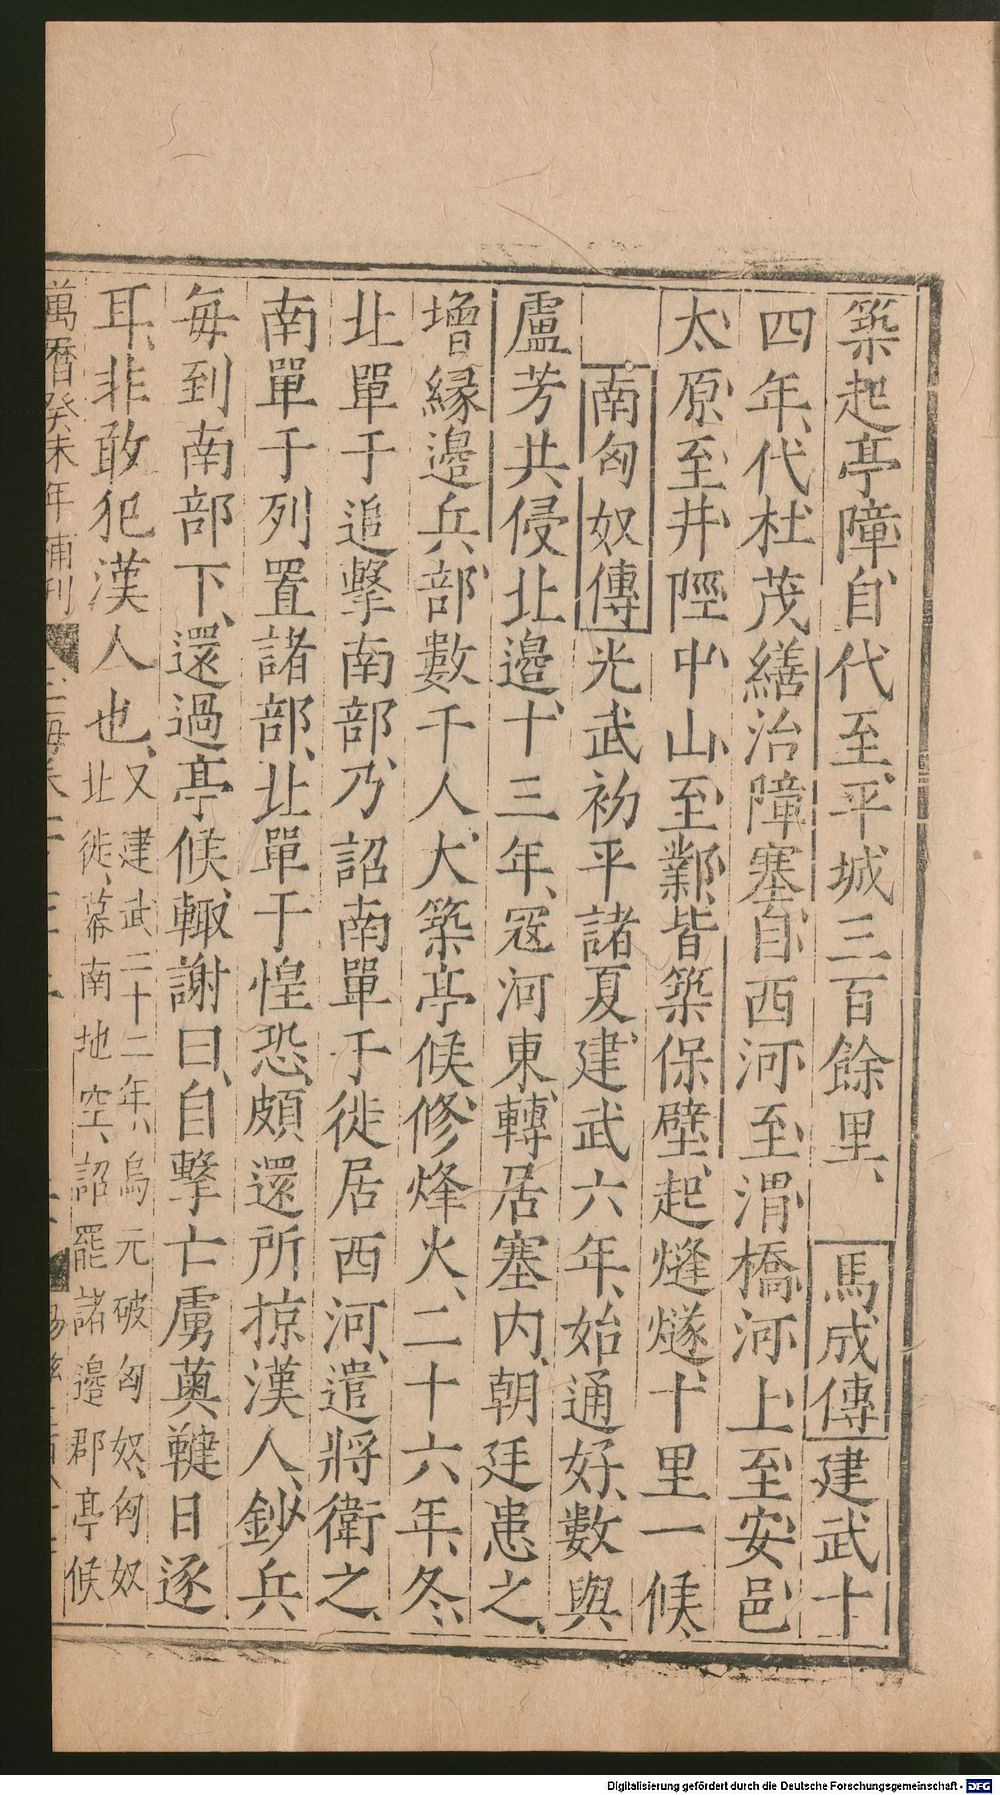 築起亭障、自代至平城三百餘里、 馬成傳建武十
四年、代杜茂繕治障塞、自西河至渭橋、河上至安邑、
太原至井陘、中山至鄴、皆築保壁、起烽燧、十里一候、
南匈奴傳光武初平諸夏、建武六年、始通好、數與
盧芳共侵北邉、十三年、冦河東、轉居塞内、朝廷患之、
增縁邉兵、部數千人、大築亭候、修烽火、二十六年、冬、
北單于追擊南部、乃詔南單于徙居西河、遣將衛之、
南單于列置諸部、北單于惶恐、頗還所掠漢人、鈔兵
毎到南部下、還過亭候、輙謝曰、自擊亡虜薁鞬日逐
耳、非敢犯漢人也、又建武二十二年、烏元破匈奴、匈奴
北徙、幕南地空、詔罷諸邉郡亭候
萬曆癸未年補刊 玉海卷二十
Digitalisierung gefördert durch die Deutsche Forschungsgemeinschaft - DFG